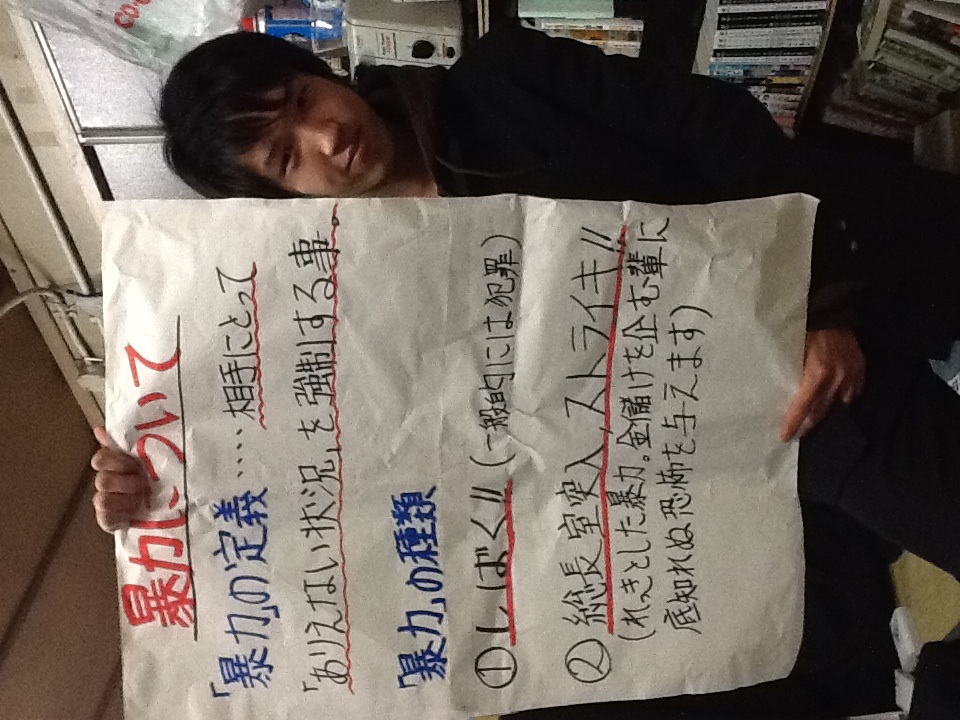 暴力について
「暴力」の定義……相手にとって
「ありえない状況」を強制する事。
「暴力」の種類
①しばく!!(一般的には犯罪)
②総長室突入,ストライキ!!
(れっきとした暴力。金儲けを企む輩に
底知れぬ恐怖を与えます)